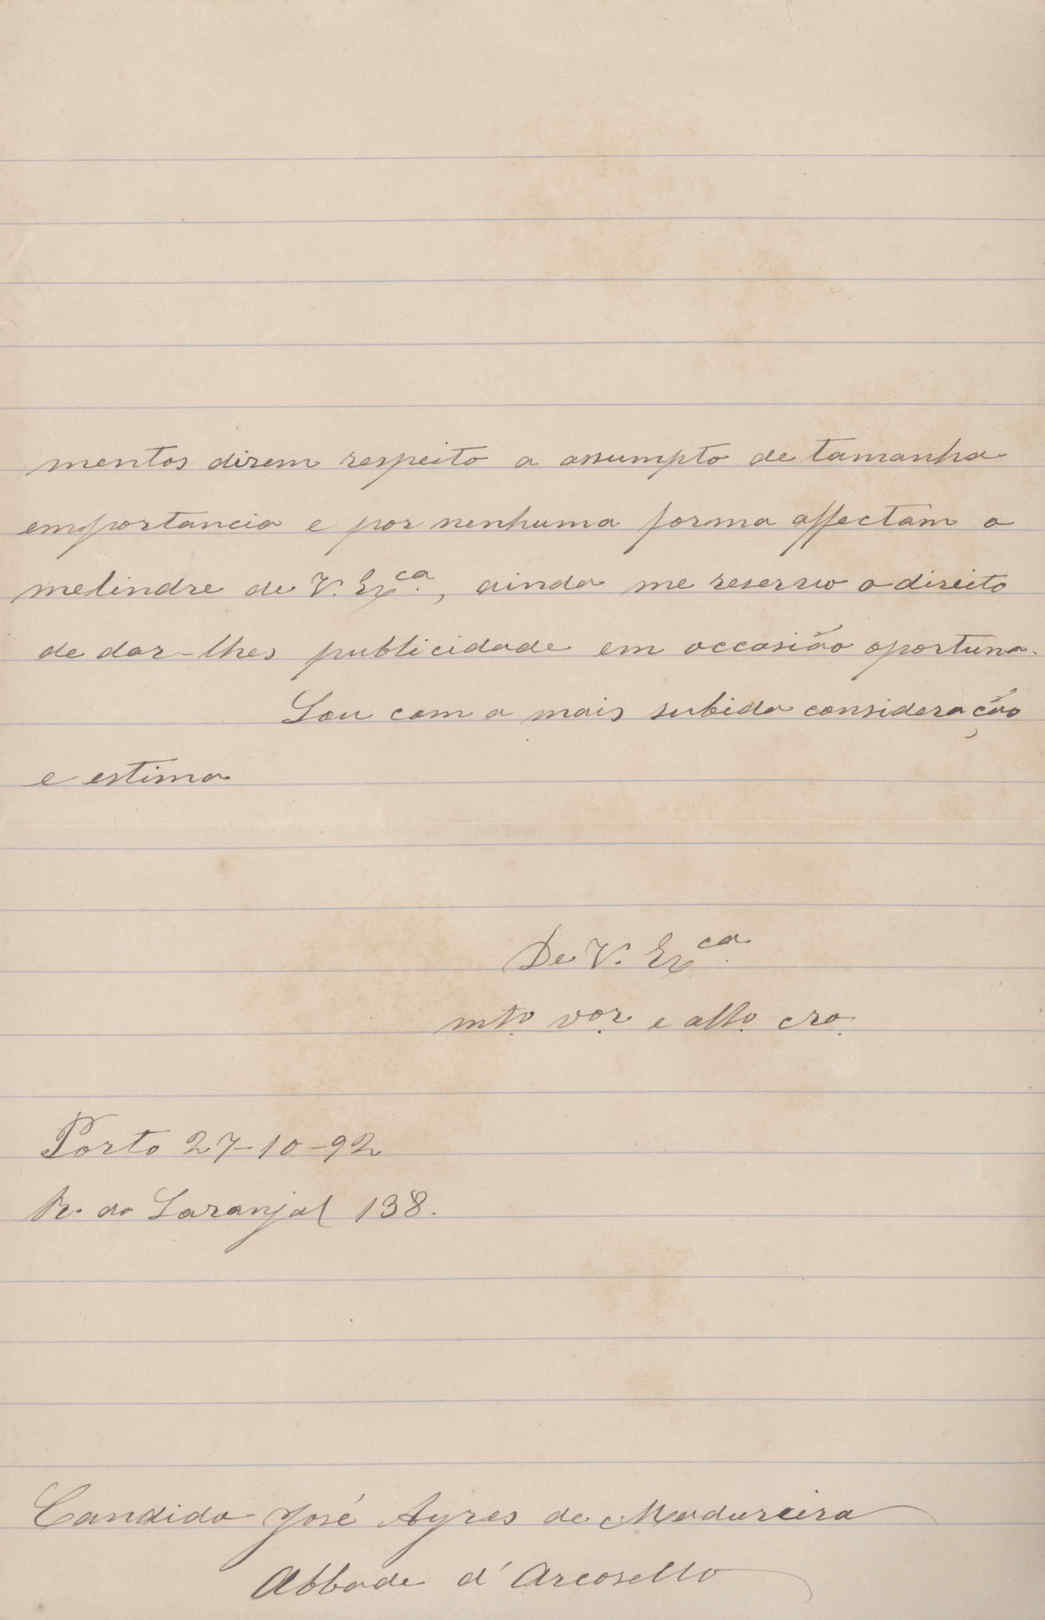 mentos dizem respeito a assumpto de tamanha
emportancia e por nenhuma forma affectam o
melindre de V. Ex.ca, ainda me reservo o direito
de dar-lhes publicidade em occasião oportuna.
Sou com a mais subida consideração
e estima
De V. Ex.ca
mto. vor. e atto. cro.
Porto 27-10-92
R. do Laranjal 138.
Candido José Ayres de Madureira
Abbade d'Arcosello